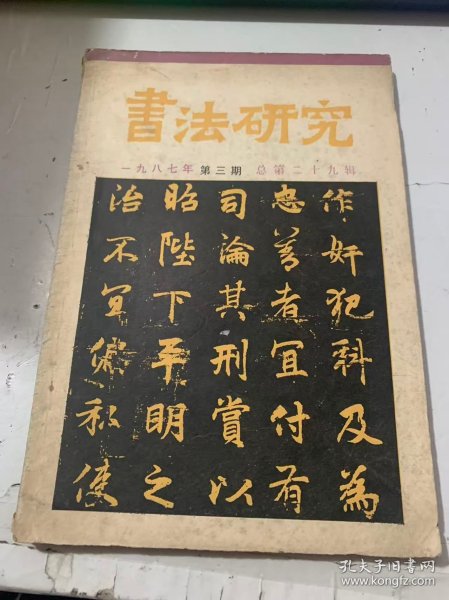 書法研究
一九八七年 第三期 总第二十九辑
作奸犯科及為
忠善者宜付有
司論其刑賞以
昭陛下平明之
治不宜偏私使
孔夫子旧书网
www.kongfz.com